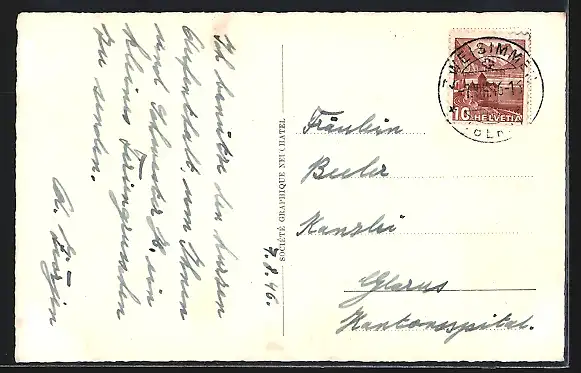 Ich benütze den kurzen
Aufenthalt, um Ihnen
und Schwester H. ein
kleines Feriengrüsschen
zu senden.
7.8.46.
SOCIÉTÉ GRAPHIQUE NEUCHATEL
ZWEISIMMEN
10 HELVETIA
Fräulein
Beeler
Kanzlei
Glarus
Kantonsspital.